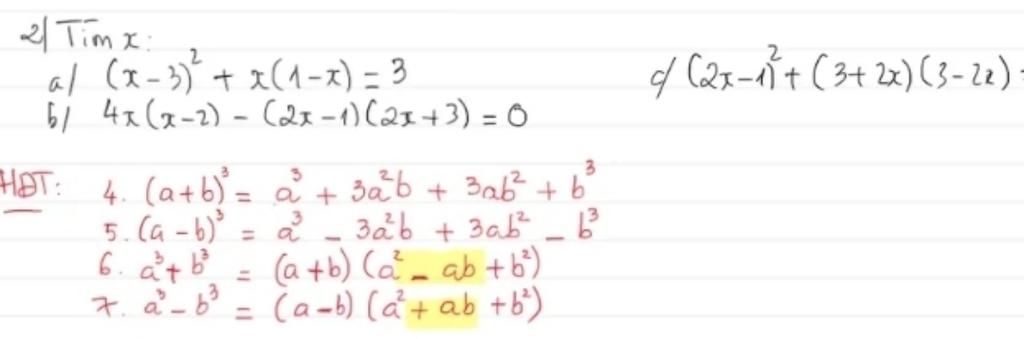 2/ Tìm x:
a/ (x-3)² + x(1-x) = 3
c/ (2x-1)² + (3+2x)(3-2x) =
b/ 4x(x-2) - (2x-1)(2x+3) = 0
HĐT: 4. (a+b)³ = a³ + 3a²b + 3ab² + b³
5. (a-b)³ = a³ - 3a²b + 3ab² - b³
6. a³+b³ = (a+b)(a² - ab + b²)
7. a³-b³ = (a-b)(a² + ab + b²)